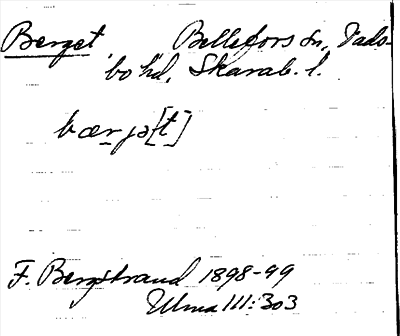 Berget Bellefors sn, Vads-
bo hd, Skarab. l.
bærjə[t]
F. Bergstrand 1898-99
Ulma 111:303